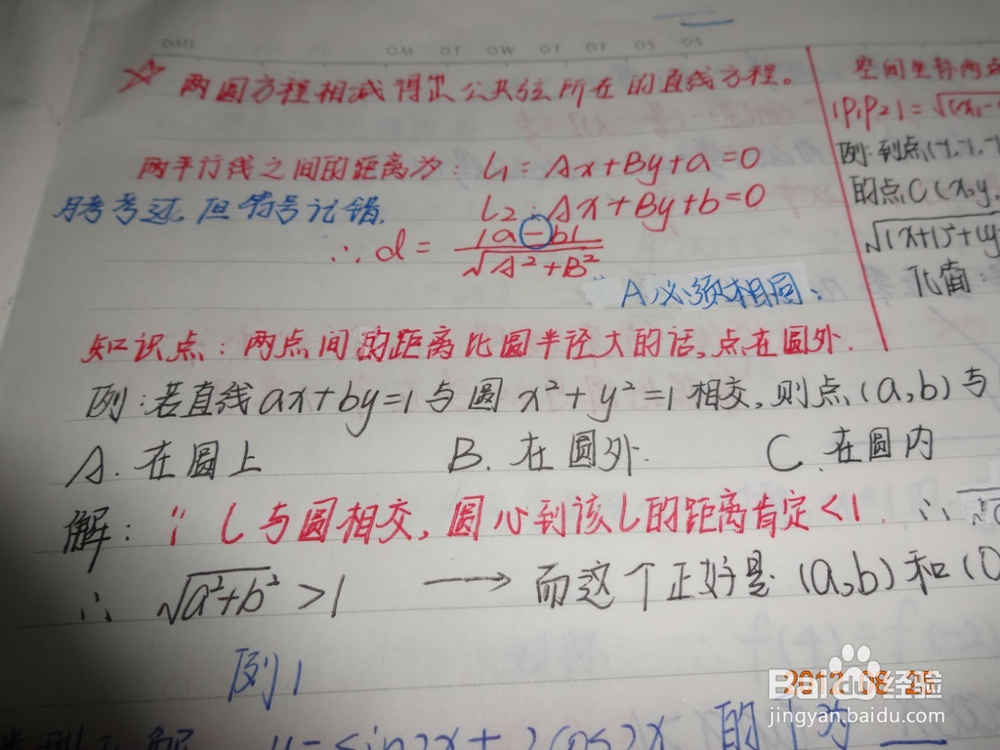 DATE
OM OT OW OT OF OS OS
☆ 两圆方程相减得出公共弦所在的直线方程。
两平行线之间的距离为: L₁ = Ax+By+a=0
月考考过,但符号记错.
L₂: Ax+By+b=0
∴d = |a-b| / √A²+B²
A必须相同.
知识点:两点间的距离比圆半径大的话,点在圆外.
例:若直线ax+by=1与圆x²+y²=1相交,则点(a,b)与
A.在圆上 B.在圆外. C.在圆内
解:∵L与圆相交,圆心到该L的距离肯定<1. ∴
∴ √a²+b² >1 → 而这个正好是(a,b)和(0
例1
的
空间坐标两点
|P₁P₂|=√(x₁-
例:到点(
的点C(x,y,
√(x+1)²+(y
化简:
2012.08.25
Baidu经验
jingyan.baidu.com